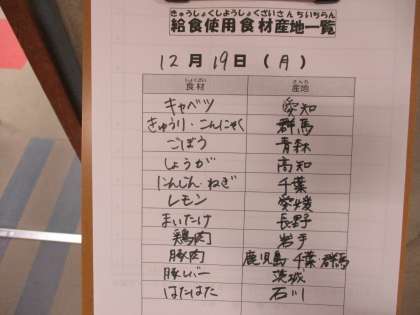 きゅうしょくしようしょくざいさんちいちらん
給食使用食材産地一覧
12月19日(月)
しょくざい さんち
食材 産地
キャベツ 愛知
きゅうり・こんにゃく 群馬
ごぼう 青森
しょうが 高知
にんじん・ねぎ 千葉
レモン 愛媛
まいたけ 長野
鶏肉 岩手
豚肉 鹿児島 千葉 群馬
豚レバー 茨城
はたはた 石川